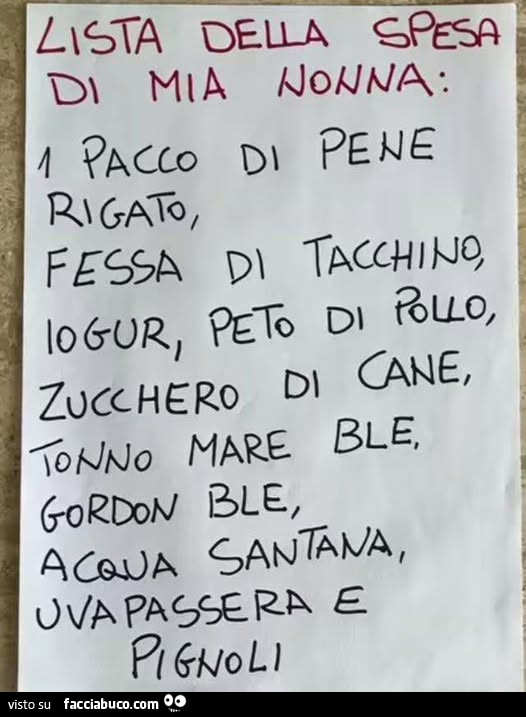 LISTA DELLA SPESA
DI MIA NONNA:
1 PACCO DI PENE
RIGATO,
FESSA DI TACCHINO,
IOGUR, PETO DI POLLO,
ZUCCHERO DI CANE,
TONNO MARE BLE,
GORDON BLE,
ACQUA SANTANA,
UVAPASSERA E
PIGNOLI
visto su facciabuco.com